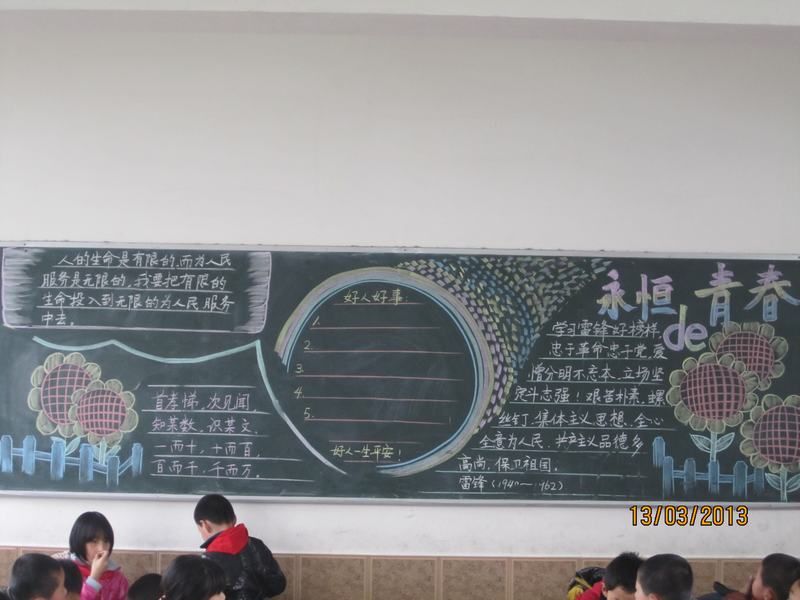 人的生命是有限的,而为人民
服务是无限的,我要把有限的
生命投入到无限的为人民服务
中去。
首孝悌,次见闻,
知某数,识某文。
一而十,十而百,
百而千,千而万。
好人好事:
1.
2.
3.
4.
5.
好人一生平安!
永恒de青春
学习雷锋好榜样,
忠于革命忠于党,爱
憎分明不忘本,立场坚
定斗志强!艰苦朴素,螺
丝钉,集体主义思想,全心
全意为人民,共产主义品德多
高尚,保卫祖国。
雷锋(1940—1962)
13/03/2013